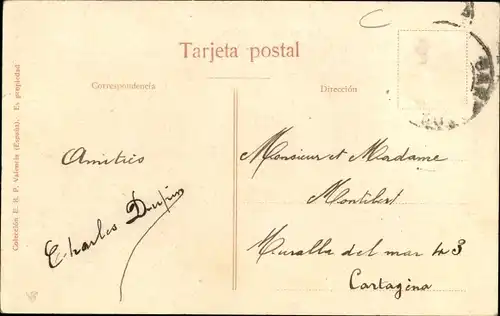 Tarjeta postal
Correspondencia
Dirección
Colección E. B. P. Valencia (España). Es propiedad
Amitiés
Charles Dupin
Monsieur et Madame
Montibert
Muralla del mar 43
Cartagena